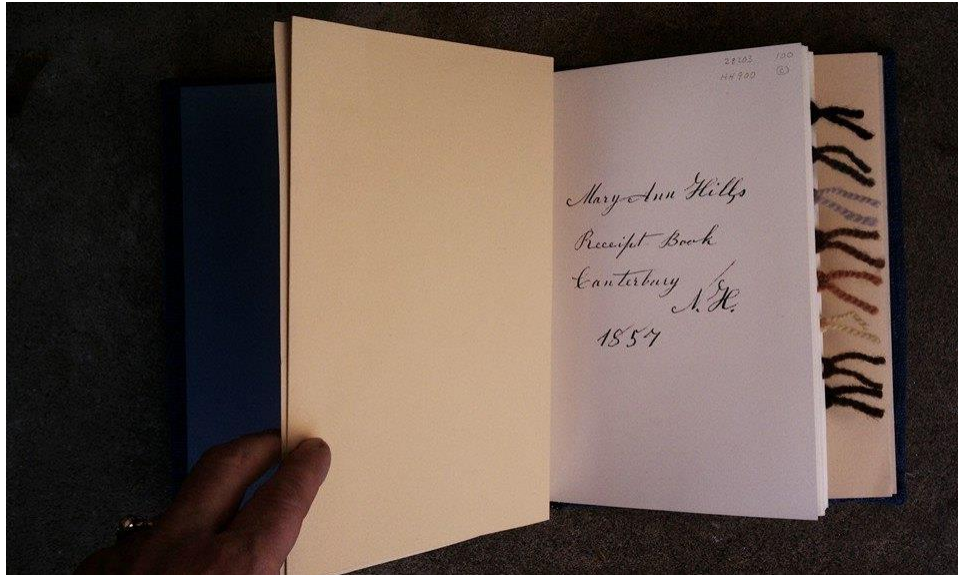 28203 100
HN 900
Mary Ann Hills
Receipt Book
Canterbury
N.H.
1857